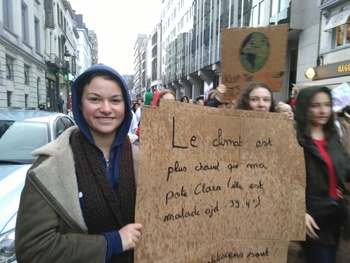 Le climat est
plus chaud que ma
pote Clara (elle est
malade ajd. 39,4°)
sont